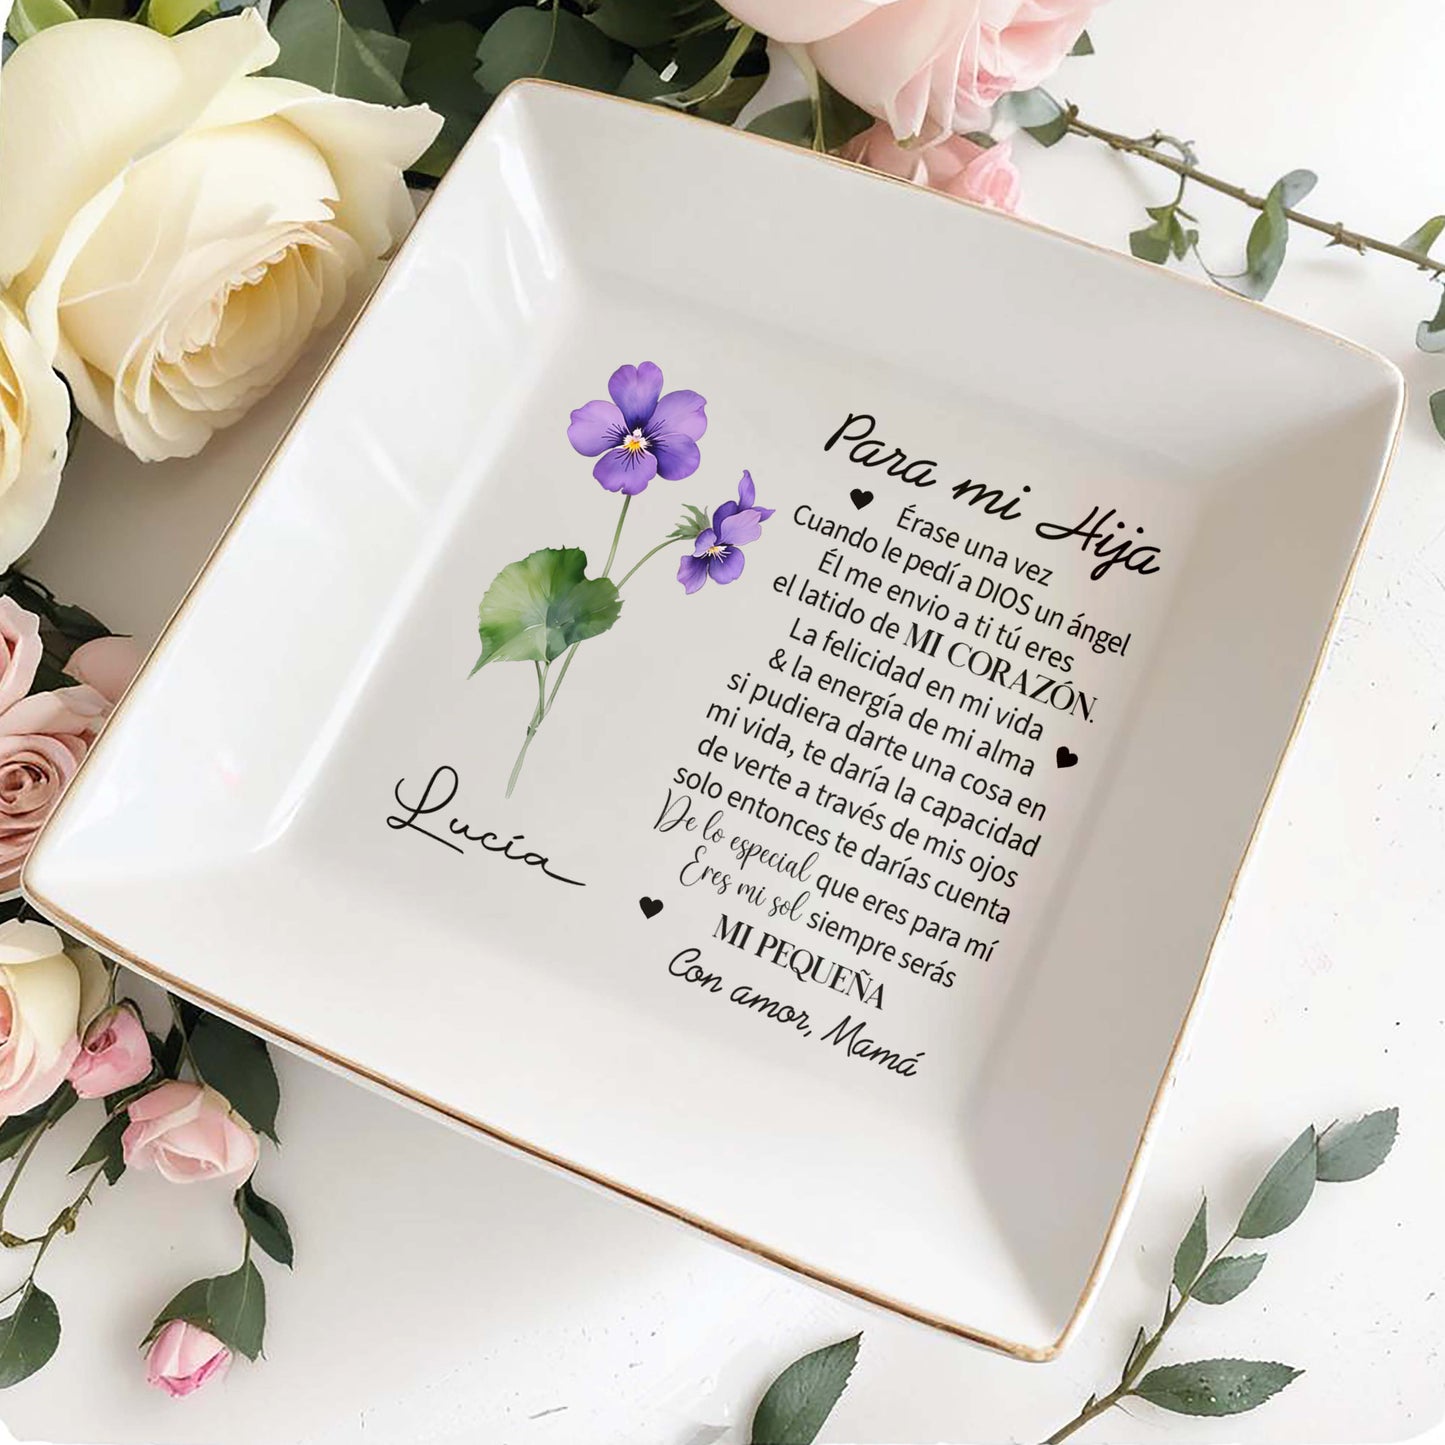 Para mi Hija
Érase una vez
Cuando le pedí a DIOS un ángel
Él me envio a ti tú eres
el latido de MI CORAZÓN.
La felicidad en mi vida
& la energía de mi alma
si pudiera darte una cosa en
mi vida, te daría la capacidad
de verte a través de mis ojos
solo entonces te darías cuenta
De lo especial que eres para mí
Eres mi sol siempre serás
MI PEQUEÑA
Con amor, Mamá
Lucía